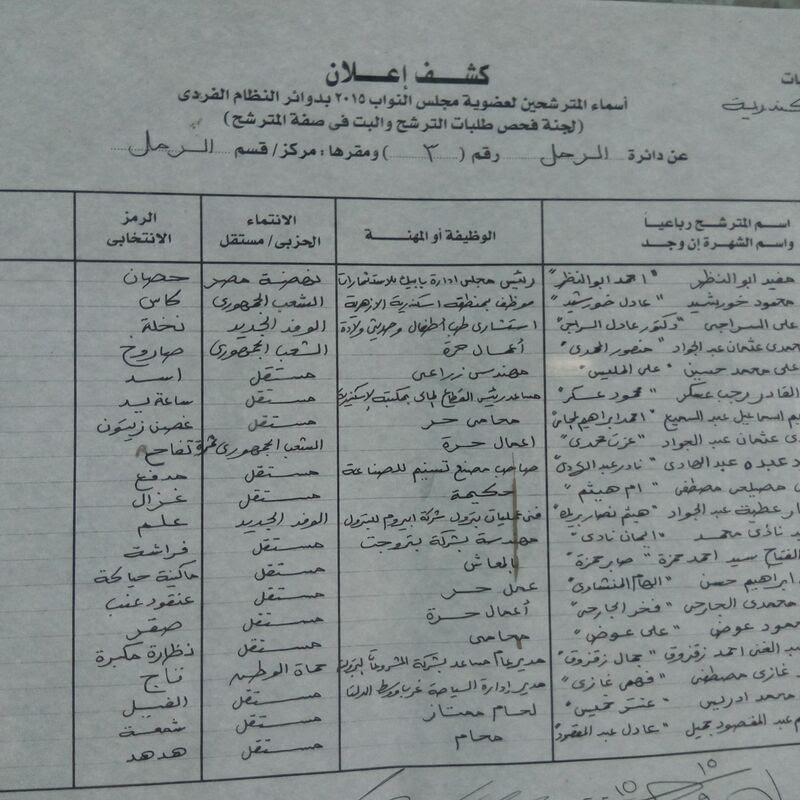 كشف إعلان
أسماء المترشحين لعضوية مجلس النواب ٢٠١٥ بدوائر النظام الفردى
(لجنة فحص طلبات الترشح والبت فى صفة المترشح)
عن دائرة الرمل رقم (٣) ومقرها: مركز/ قسم الرمل
اسم المترشح رباعياً واسم الشهرة إن وجد الوظيفة أو المهنة الانتماء الحزبى/ مستقل الرمز الانتخابى
مفيد ابو النظر "احمد ابو النظر" رئيس مجلس ادارة للاستثمارات نهضة مصر حصان
محمود خورشيد "عادل خورشيد" موظف بمنطقة اسكندرية الازهرية الشعب الجمهورى كاس
على السراجى "دكتور عادل السراجى" استشارى طب أطفال وحديثى ولادة الوفد الجديد نخلة
حمدى عثمان عبد الجواد "منصور الحمدى" أعمال حرة الشعب الجمهورى صاروخ
على محمد حسين مهندس زراعى مستقل اسد
القادر رجب عسكر "محمود عسكر" مساعد رئيس القطاع المالى بمكتبة الإسكندرية مستقل ساعة يد
اسماعيل عبد السميع "احمد ابراهيم المحامى" محامى حر مستقل غصن زيتون
عثمان عبد الجواد "عزت حمدى" اعمال حرة الشعب الجمهورى ثمرة تفاح
عبده عبد الهادى صاحب مصنع تسنيم للصناعة مستقل مدفع
مصيلحى مصطفى "ام هيثم" حكيمة مستقل غزال
عطية عبد الجواد "هيثم نصار بريك" فنى عمليات بترول شركة للبترول الوفد الجديد علم
نادى محمد "ايمان نادى" مهندسة بشركة بتروجت مستقل فراشة
الفتاح سيد احمد حمزة "صابر حمزة" بالمعاش مستقل ماكينة حياكة
ابراهيم حسن "الهام النشادى" عمل حر مستقل عنقود عنب
محمدى الجارحى "فخر الجارحى" أعمال حرة مستقل صقر
محمود عوض "على عوض" محامى مستقل نظارة مكبرة
عبد الغنى احمد زقزوق "جمال زقزوق" مدير عام مساعد بشركة حماة الوطن تاج
غازى مصطفى "فهمى غازى" مدير ادارة السياحة غرب ووسط الدلتا مستقل الفيل
محمد ادريس "عنتر خميس" لحام ممتاز مستقل شمعة
عبد المقصود جميل "عادل عبد المقصود" محام مستقل هدهد